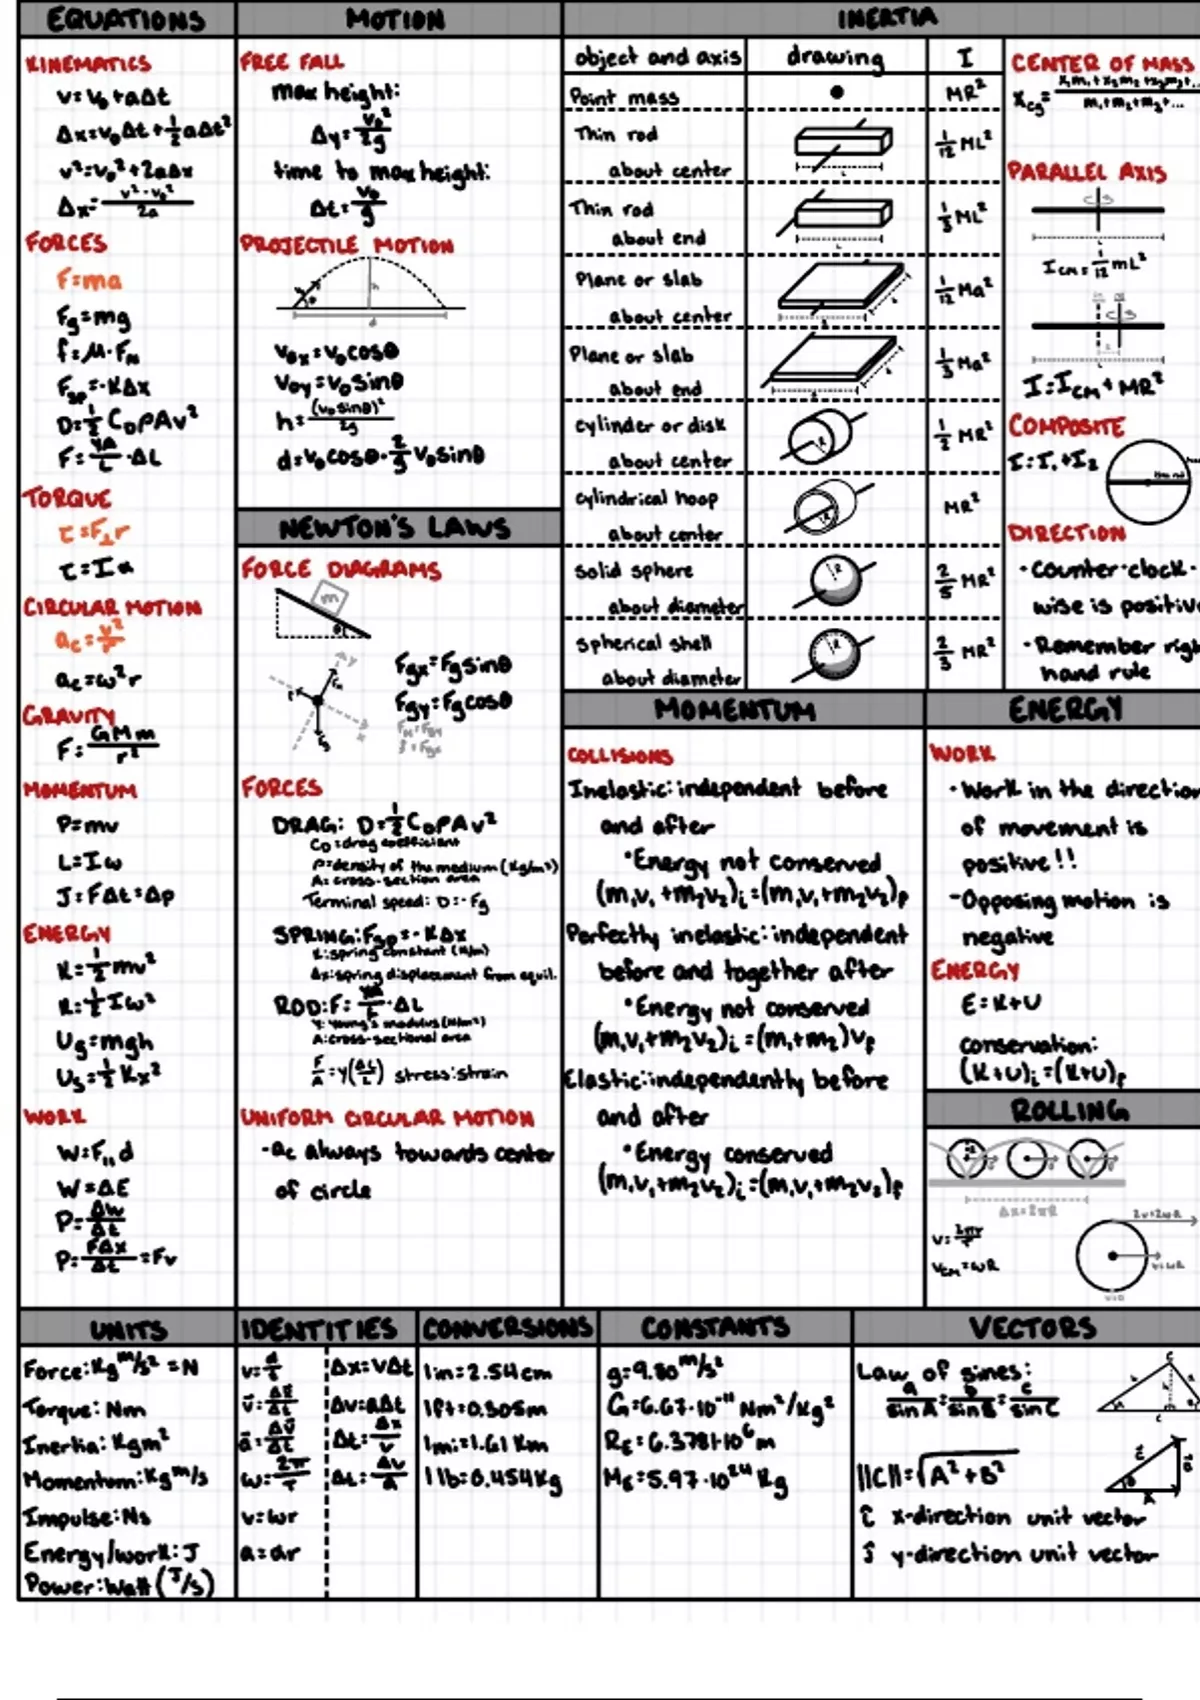 EQUATIONS
KINEMATICS
v=v₀+aΔt
Δx=v₀Δt+½aΔt²
v²=v₀²+2aΔx
Δx=(v²-v₀²)/2a
FORCES
F=ma
Fg=mg
f=μ·F_N
Fsp=-KΔx
D=½C_DρAv²
F=YA/L·ΔL
TORQUE
τ=F⊥r
τ=Iα
CIRCULAR MOTION
a_c=v²/r
a_c=ω²r
GRAVITY
F=GMm/r²
MOMENTUM
P=mv
L=Iω
J=FΔt=Δp
ENERGY
K=½mv²
K=½Iω²
Ug=mgh
Us=½Kx²
WORK
W=F₁₁d
W=ΔE
P=ΔW/Δt
P=FΔx/Δt=Fv
MOTION
FREE FALL
max height:
Δy=v₀²/2g
time to max height:
Δt=v₀/g
PROJECTILE MOTION
h
d
v₀x=v₀cosθ
v₀y=v₀sinθ
h=(v₀sinθ)²/2g
d=v₀cosθ·2/g v₀sinθ
NEWTON'S LAWS
FORCE DIAGRAMS
m
θ
y
x
Fgx=Fgsinθ
Fgy=Fgcosθ
F_N=Fgy
f=Fgx
FORCES
DRAG: D=½C_DρAv²
C_D=drag coefficient
ρ=density of the medium (kg/m³)
A=cross-section area
Terminal speed: D=-Fg
SPRING: Fsp=-KΔx
K:spring constant (N/m)
Δx:spring displacement from equil.
ROD: F=YA/L·ΔL
Y: Young's modulus (N/m²)
A:cross-sectional area
F/A=Y(ΔL/L) stress:strain
UNIFORM CIRCULAR MOTION
-ac always towards center
of circle
INERTIA
object and axis drawing I
Point mass MR²
Thin rod
about center 1/12 ML²
L
Thin rod
about end 1/3 ML²
L
Plane or slab
about center 1/12 Ma²
Plane or slab
about end 1/3 Ma²
cylinder or disk
about center R 1/2 MR²
cylindrical hoop
about center R MR²
solid sphere
about diameter R 2/5 MR²
spherical shell
about diameter R 2/3 MR²
CENTER OF MASS
x_cg=x₁m₁+x₂m₂+x₃m₃+.../m₁+m₂+m₃+...
PARALLEL AXIS
L
I_CM=1/12 mL²
I=I_CM+MR²
COMPOSITE
I=I₁+I₂
DIRECTION
·Counter-clock-
wise is positive
·Remember righ
hand rule
MOMENTUM
COLLISIONS
Inelastic:independent before
and after
·Energy not conserved
(m₁v₁+m₂v₂)i=(m₁v₁+m₂v₂)f
Perfectly inelastic:independent
before and together after
·Energy not conserved
(m₁v₁+m₂v₂)i=(m₁+m₂)vf
Elastic:independently before
and after
·Energy conserved
(m₁v₁+m₂v₂)i=(m₁v₁+m₂v₂)f
ENERGY
WORK
·Work in the direction
of movement is
positive!!
-Opposing motion is
negative
ENERGY
E=K+U
conservation:
(K+U)i=(K+U)f
ROLLING
Δx=2πR
v=2πr/T
v_CM=ωR
2v=2ωR
v=ωR
v=0
UNITS
Force:Kg m/s²=N
Torque: Nm
Inertia: Kgm²
Momentum:Kg m/s
Impulse:Ns
Energy/work:J
Power:Watt (J/s)
IDENTITIES
v=d/t
v⃗=Δx⃗/Δt
a⃗=Δv⃗/Δt
ω=2π/T
v=ωr
a=αr
Δx=vΔt
Δv=aΔt
Δt=Δx/v
Δt=Δv/a
CONVERSIONS
1in=2.54cm
1ft=0.305m
1mi=1.61 Km
1 lb=0.454Kg
CONSTANTS
g=9.80 m/s²
G=6.67·10⁻¹¹ Nm²/Kg²
R_E=6.3781·10⁶ m
M_E=5.97·10²⁴ Kg
VECTORS
Law of sines:
a/sin A=b/sin B=c/sin C
||C||=√A²+B²
î x-direction unit vector
ĵ y-direction unit vector